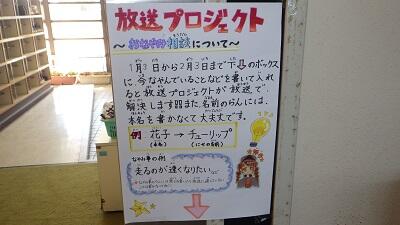 放送プロジェクト
～おなやみ相談について～
1月3日から2月3日まで下⇩のボックス
に、今なんでいることなどを書いて入れ
ると放送プロジェクトが放送で、
解決します！！また、名前のらんには、
本名を書かなくて大丈夫です。
例 花子→チューリップ
(本名) (にせの名前)
なやみ事の例
走るのが速くなりたい。など